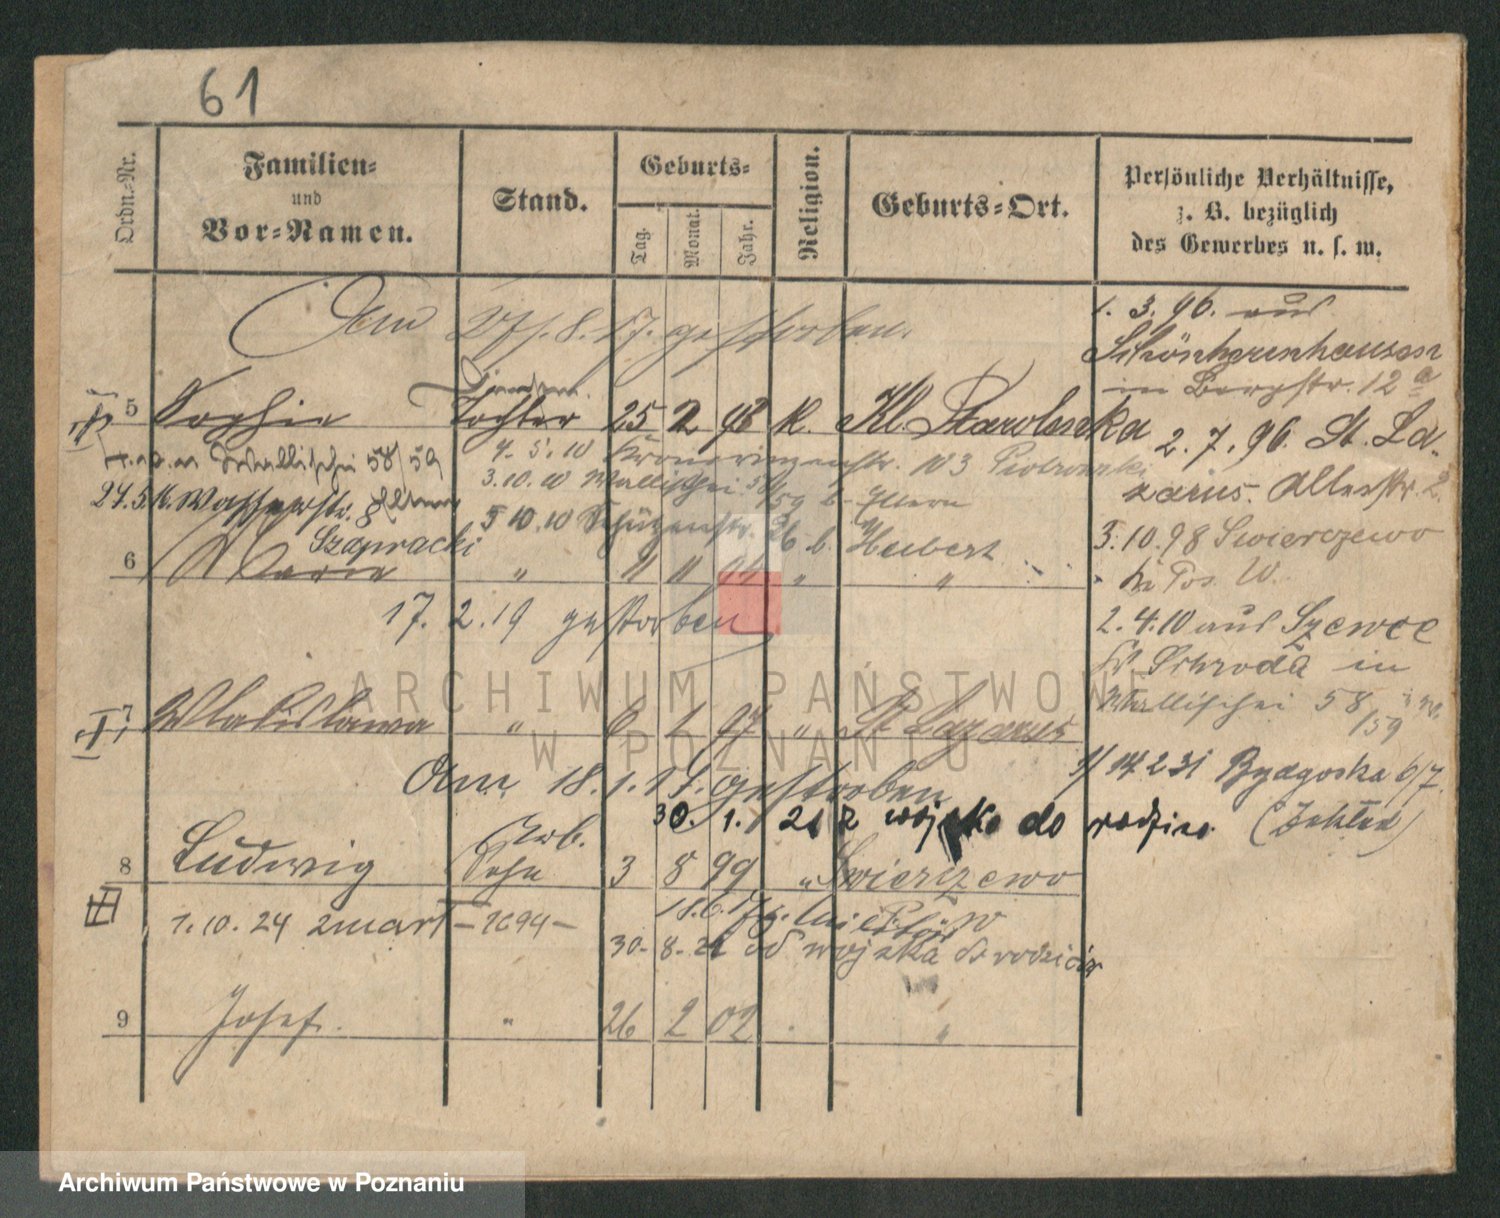 61
Ordn.-Nr.
Familien-
und
Vor-Namen.
Stand.
Geburts-
Tag.
Monat.
Jahr.
Religion.
Geburts-Ort.
Persönliche Verhältnisse,
z. B. bezüglich
des Gewerbes u. s. w.
27/8.17. gestorben.
1. 3. 96. aus
Schönherrnhausen
in Bergstr. 12 a
5 Sophie Tochter 25 2 98 K. Kl. Starolenka
2. 7. 96. St. La-
zarus. Allerstr. 2.
Wallischei 58/59
4. 5. 10 Kronprinzenstr. 103
3. 10. 10 Wallischei 58/59 b. Eltern
27. 5. 16. Wasserstr. 8
Szapracki
5 10. 10 Schützenstr. 26 b. Heibert
3. 10. 98 Swierczewo
Kr. Pos. W.
6 Marie " " " " " "
17. 2. 19 gestorben
2. 4. 10 aus Szewce
Kr. Schroda in
Wallischei 58
/59
7 Wladislawa " 6 1 97 " St. Lazarus
Am 18. 1. gestorben
14 2 31 Bydgoska 6/7.
30. 1. 21 z wojska do rodzic.
8 Ludwig Arb. Sohn 3 8 99 " Swierczewo
1. 10. 24 zmarł -1694-
18. 6. 17
30 - 8 - 21 od wojska do rodziców
9 Josef. " 26 2 02 "
ARCHIWUM PAŃSTWOWE
W POZNANIU
Archiwum Państwowe w Poznaniu